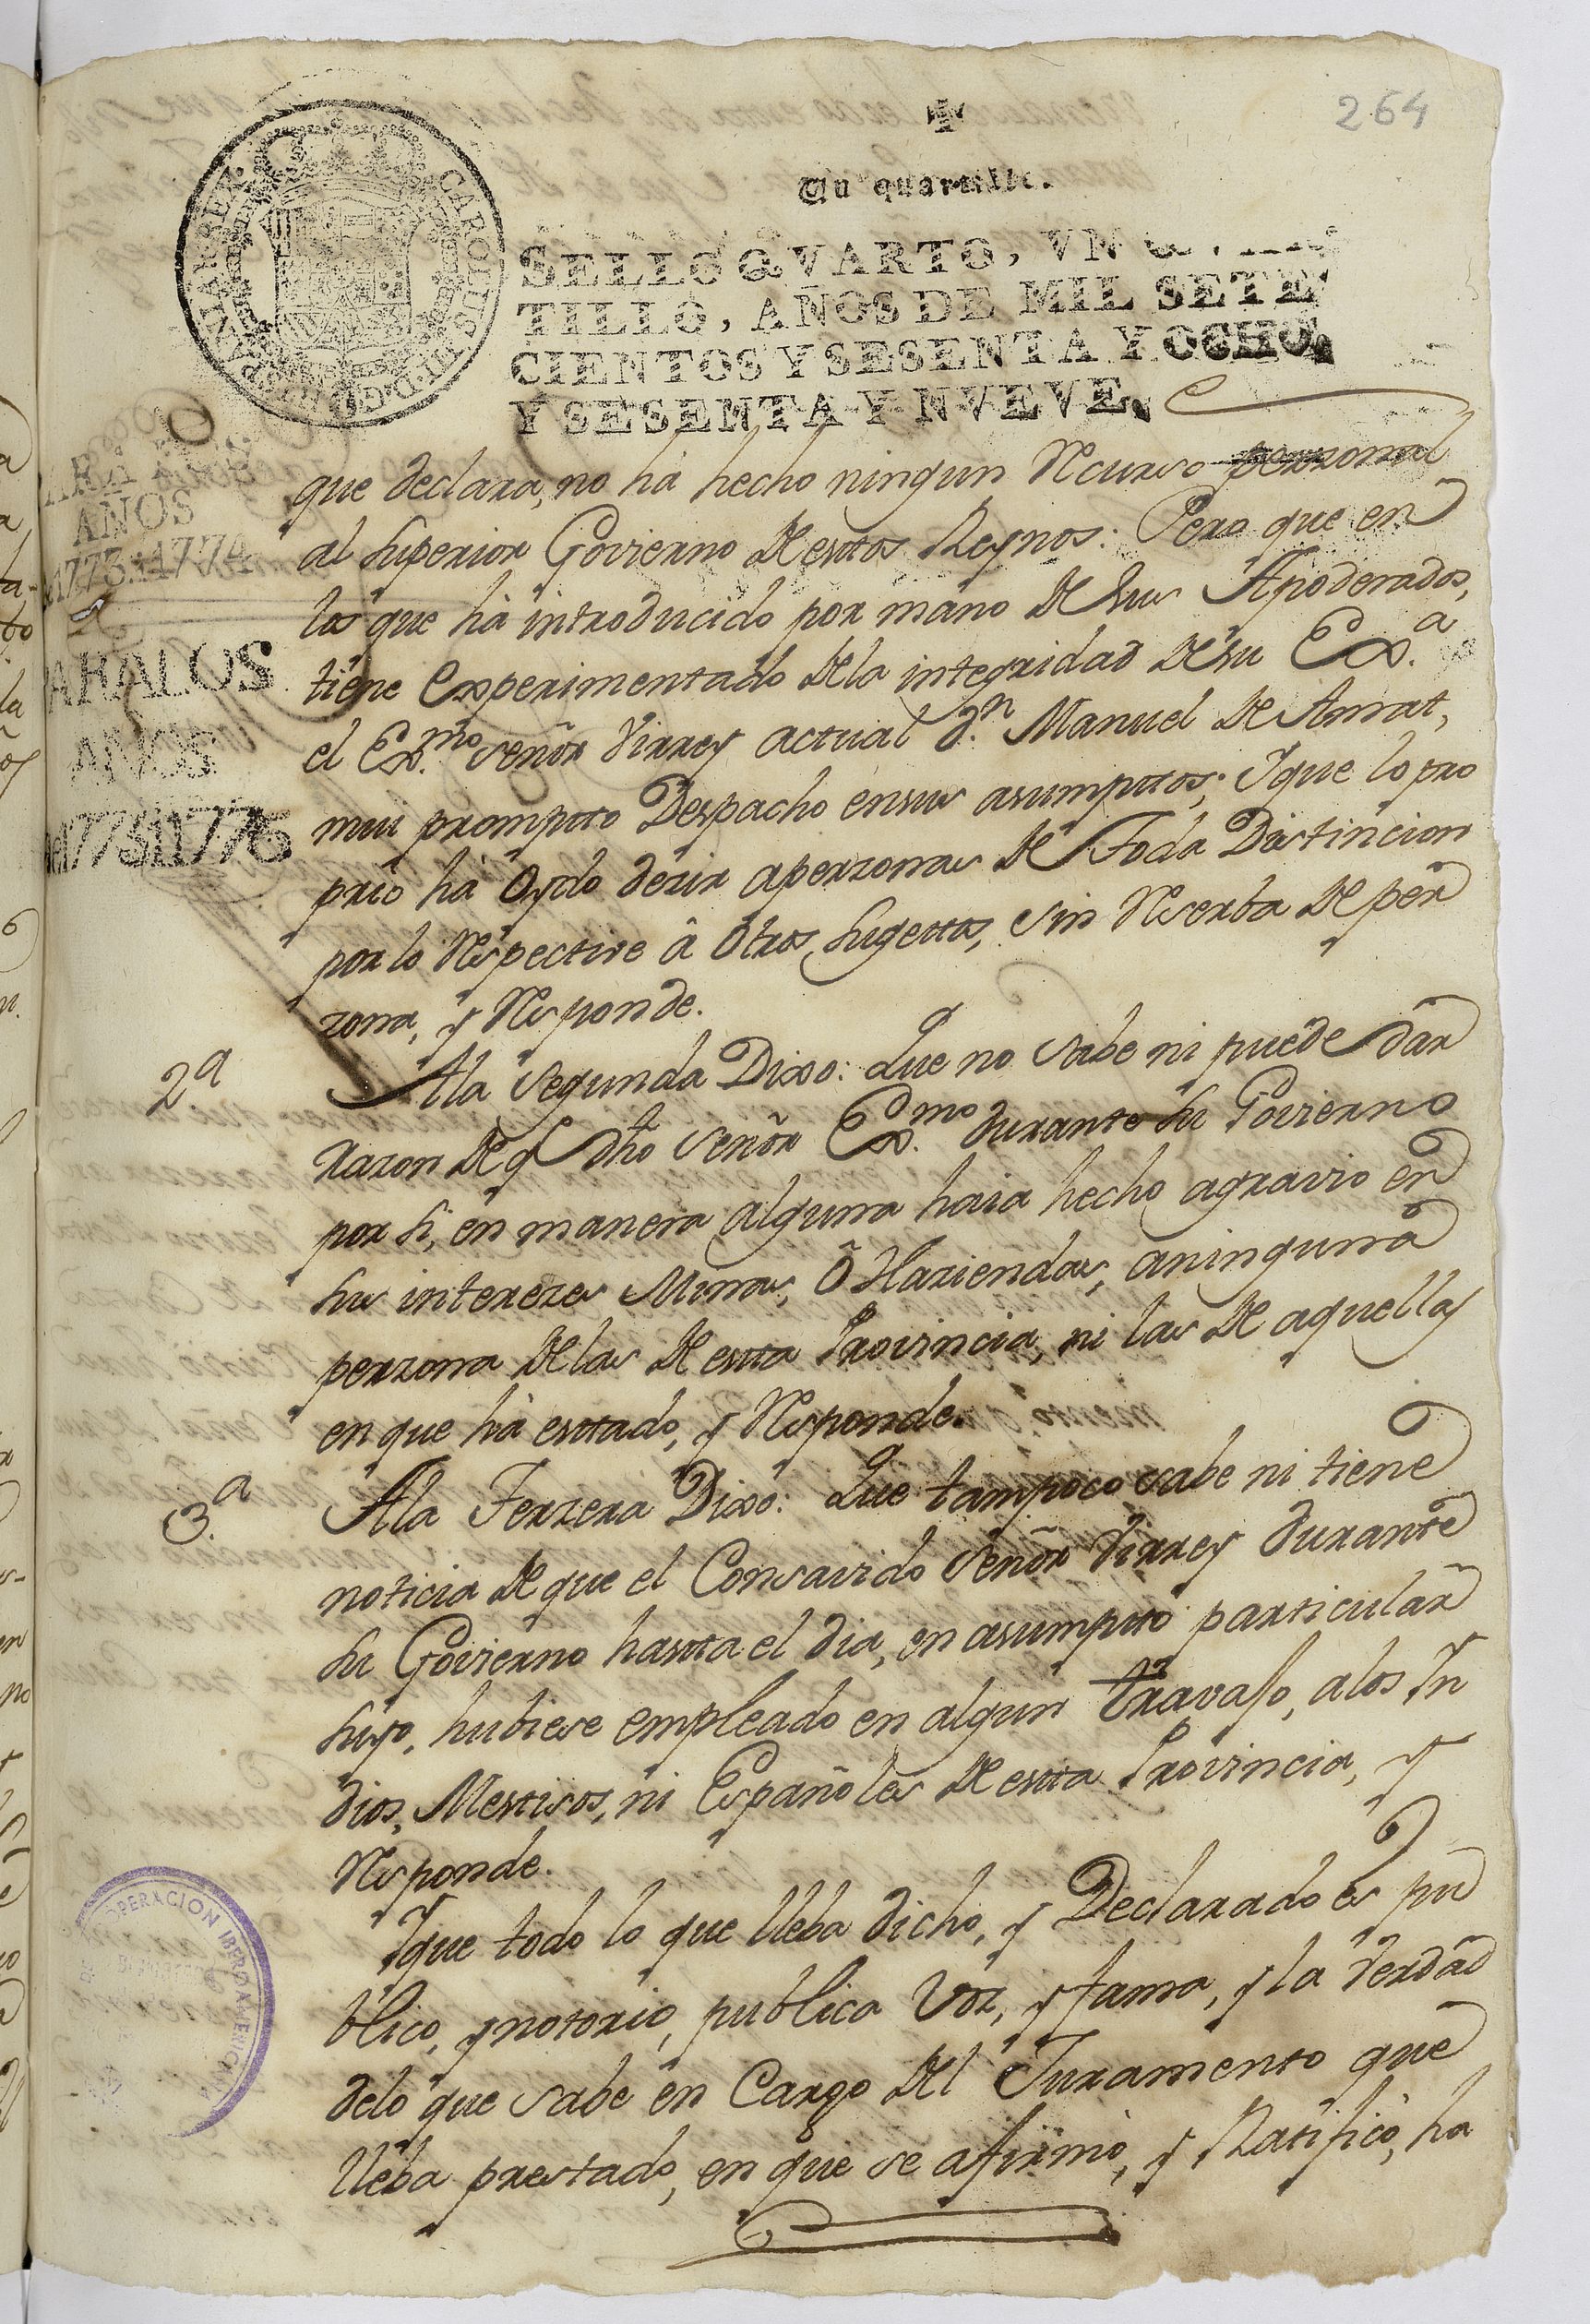 264
Un quartillo.
SELLO QVARTO, VN QVAR
TILLO, AÑOS DE MIL SETE
CIENTOS Y SESENTA Y OCHO,
Y SESENTA Y NVEVE.
CAROLUS III D G HISPANIAR REX
PARA LOS
AÑOS
1773 1774
PARA LOS
AÑOS
de 1775 1776
que declara, no há hecho ningun Recurso personal
al Superior Govierno de estos Reynos: Pero que en
los que há introducido por mano de sus Apoderados,
tiene experimentado dela integridad de su Ex.ª
el Ex.mo señor Virrey actual d.n Manuel de Amat,
mui prompto Despacho ensus asumptos; Y que lo pro
prio há Oydo dezir aperzonas de Toda Distincion
por lo Respective â Otros Sugettos, sin Reserba de per
zona, y Responde.
2ª
Ala segunda Dixo: Que no sabe ni puede dar
razon de q dho señor Ex.mo durante su Govierno
por si, en manera alguna haia hecho agravio en
sus interezes Minas, Ô Haziendas, aninguna
perzona delas de esta Provincia, ni las de aquellas
en que há estado, y Responde.
3.ª
Ala Terzera Dixo: Que tampoco sabe ni tiene
noticia de que el Consavido señor Virrey durante
su Govierno hasta el dia, en asumpto particular
suyo, hubiese empleado en algun travajo, alos In
dios, Mestisos, ni Españoles de esta Provincia, y
Responde.
Yque todo lo que lleba dicho, y Declarado es pu
blico, y notorio, publica Voz, y fama, y la verdad
delo que sabe en Cargo del Juramento que
lleba prestado, en que se afirmó, y Ratificó, ha
COOPERACION IBEROAMERICANA